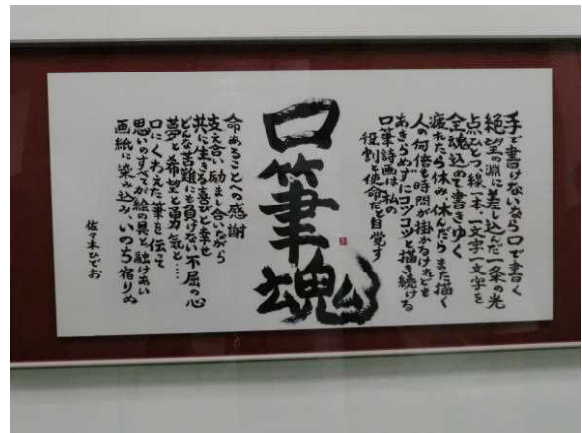 手で書けないなら口で書く
絶望の淵に差し込んだ一条の光
点ひとつ線一本、一文字一文字を
全魂込めて書きゆく
疲れたら休み 休んだらまた描く
人の何倍も時間が掛かるけれども
あきらめずにコツコツと描き続ける
口筆詩画は私の
役割と使命だと自覚す
口筆魂
命あることへの感謝
支え合い励まし合いながら
共に生きる喜びと幸せ
どんな苦難にも負けない不屈の心
夢と希望と勇気と…
口にくわえた筆を伝って
思いのすべてが絵の具と融けあい
画紙に染み込み、いのち宿りぬ
佐々木ひでお